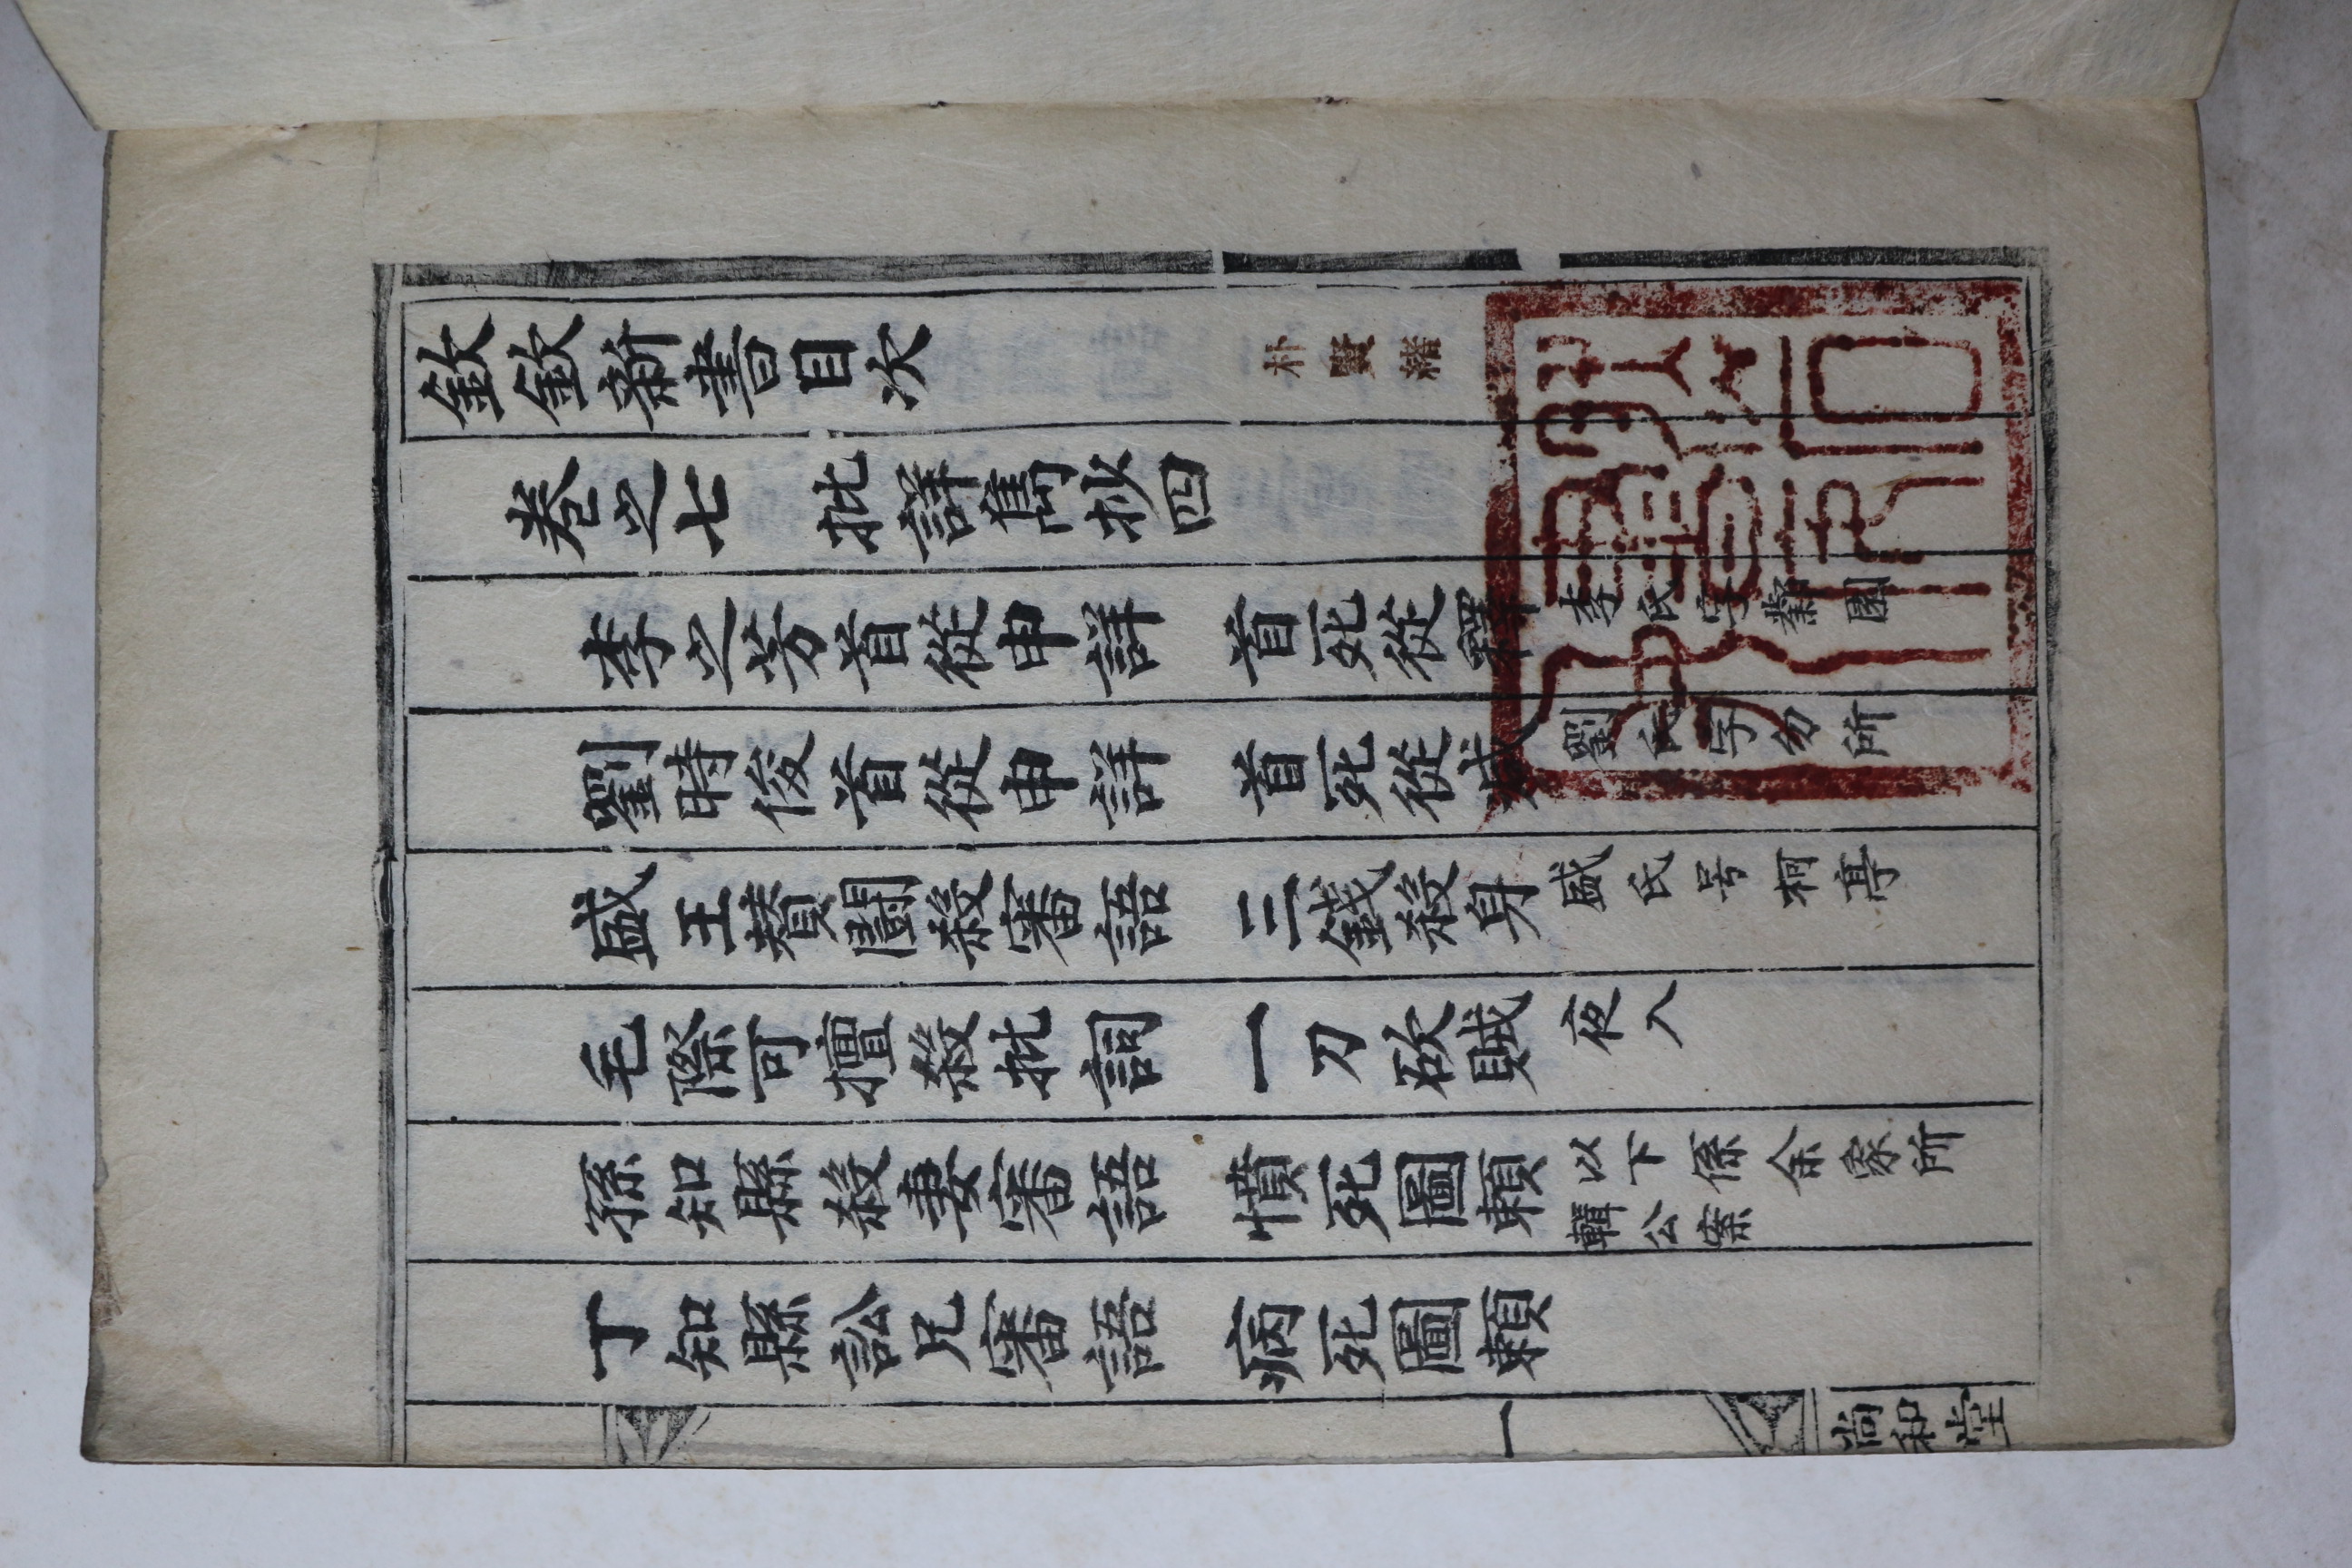 欽欽新書目次
朴賢
卷之七 批詳雋抄四
李之芳首從申詳 首死從釋 李氏字鄴園
劉時俊首從申詳 首死從減 劉氏字勿所
盛王贊鬪殺審語 三錢殺身 盛氏号柯亭
毛際可擅殺批詞 一刀砍賊 夜入
孫知縣殺妻審語 憤死圖賴 以下係余象所
輯公案
丁知縣訟兄審語 病死圖賴
一 尚和堂